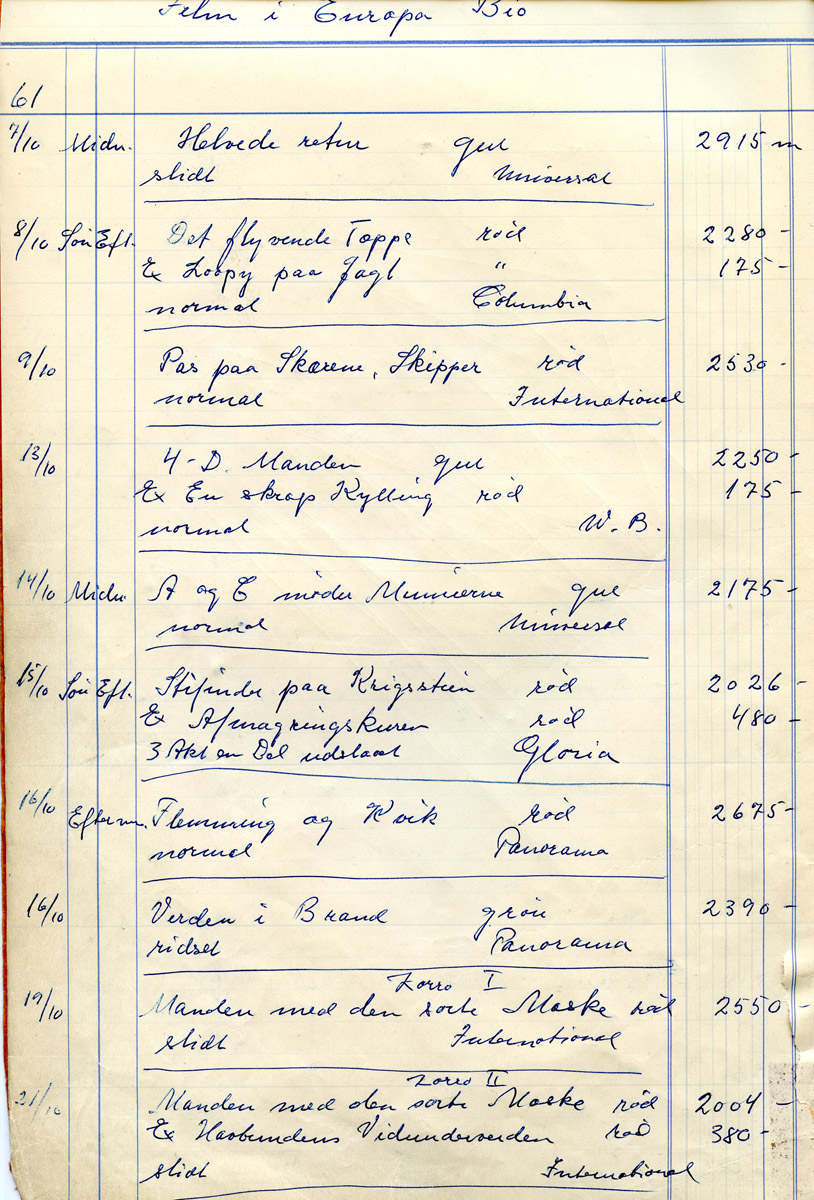 Film i Europa Bio
61
7/10 Midn. Helvede retur gul 2915 m
slidt Universal
8/10 Søn Eft. Det flyvende Tæppe rød 2280 -
Ex Loopy paa Jagt " 175 -
normal Columbia
9/10 Pas paa Skærene, Skipper rød 2530 -
normal International
13/10 4-D. Manden gul 2250 -
Ex En skrap Kylling rød 175 -
normal W. B.
14/10 Midn. A og C møder Mumierne gul 2175 -
normal Universal
15/10 Søn Eft. Stifinder paa Krigsstien rød 2026 -
Ex Afmagringskuren rød 480 -
3 Akt en Del udslaat Gloria
16/10 Efterm. Flemming og Kvik rød 2675 -
normal Panorama
16/10 Verden i Brand grøn 2390 -
ridset Panorama
Zorro I
19/10 Manden med den sorte Maske rød 2550 -
slidt International
Zorro II
21/10 Manden med den sorte Maske rød 2004 -
Ex Havbundens Vidunderverden rød 380 -
slidt International